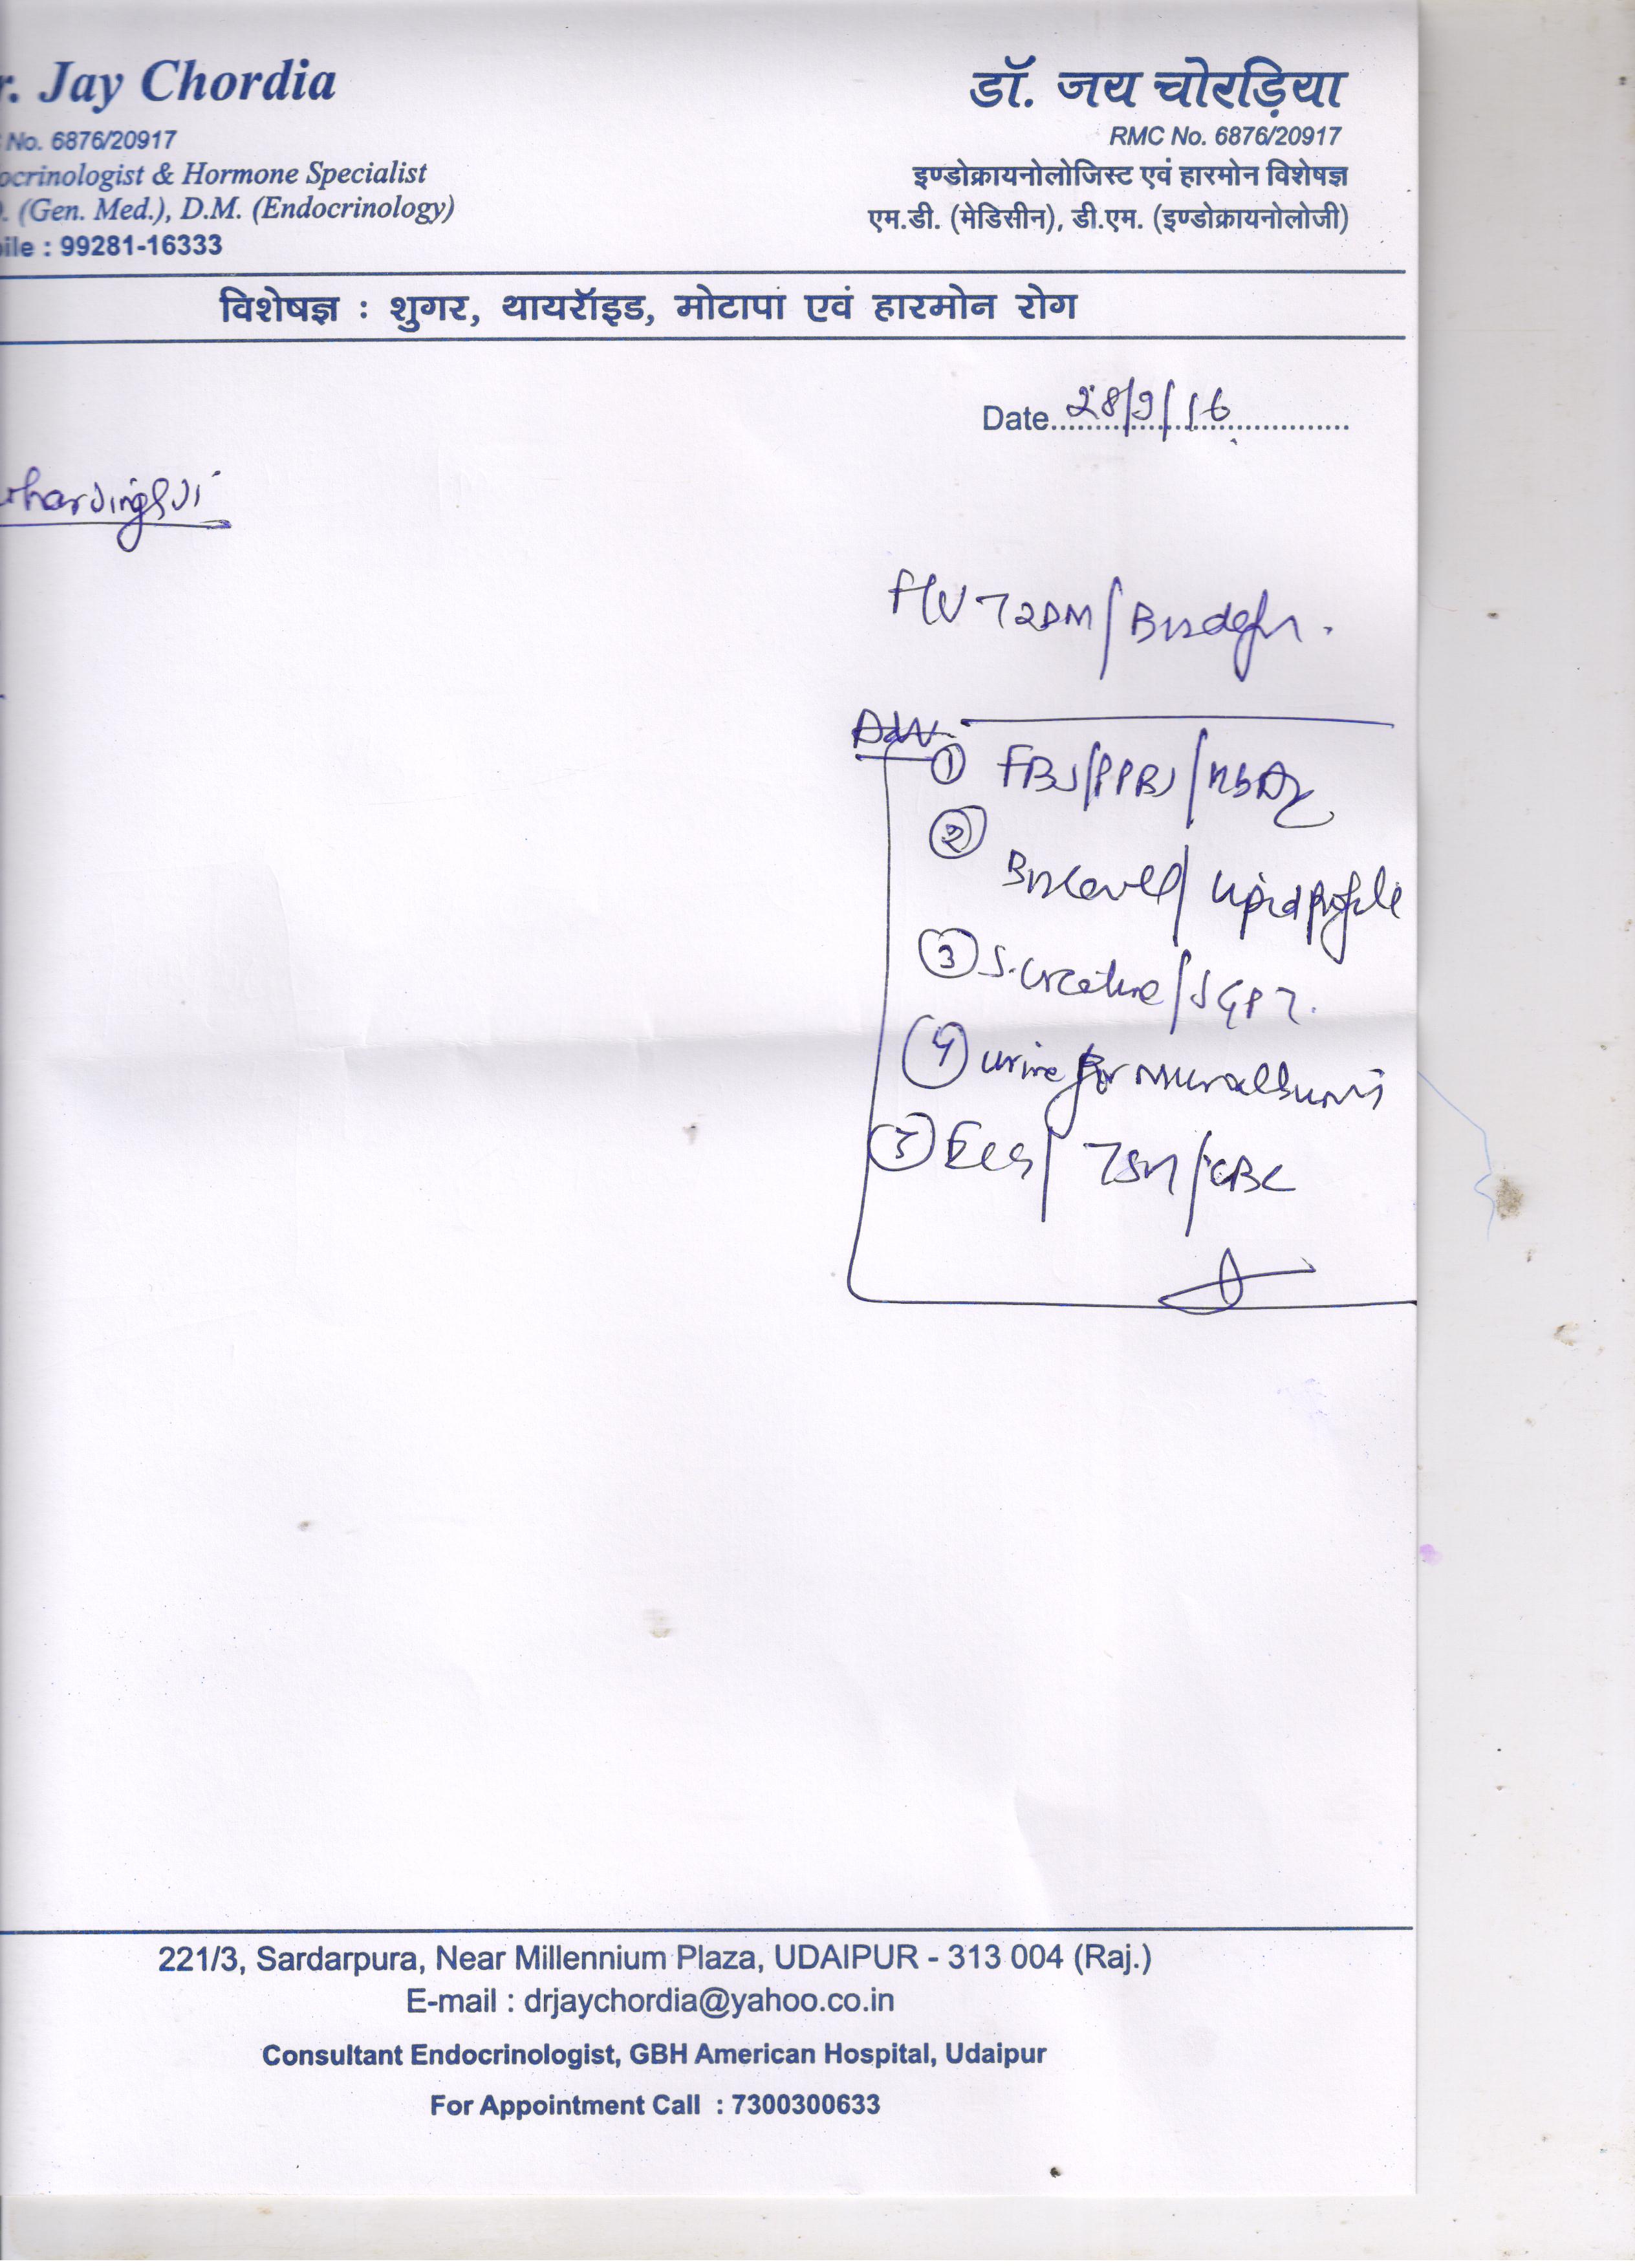 r. Jay Chordia
डॉ. जय चोरड़िया
No. 6876/20917
RMC No. 6876/20917
ocrinologist & Hormone Specialist
इण्डोक्रायनोलोजिस्ट एवं हारमोन विशेषज्ञ
. (Gen. Med.), D.M. (Endocrinology)
एम.डी. (मेडिसीन), डी.एम. (इण्डोक्रायनोलोजी)
ile : 99281-16333
विशेषज्ञ : शुगर, थायरॉइड, मोटापा एवं हारमोन रोग
Date 28/9/16
T2DM/
Adv
① FBS/PPBS/HbA1c
② B12 level/ Lipid profile
③ S. creatinine/SGPT.
④ urine for
⑤ ECG/ TSH/CBC
221/3, Sardarpura, Near Millennium Plaza, UDAIPUR - 313 004 (Raj.)
E-mail : drjaychordia@yahoo.co.in
Consultant Endocrinologist, GBH American Hospital, Udaipur
For Appointment Call : 7300300633